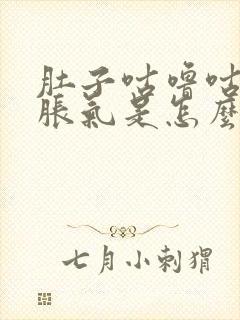 肚子咕噜咕
脹氣是怎麼
七月小刺猬